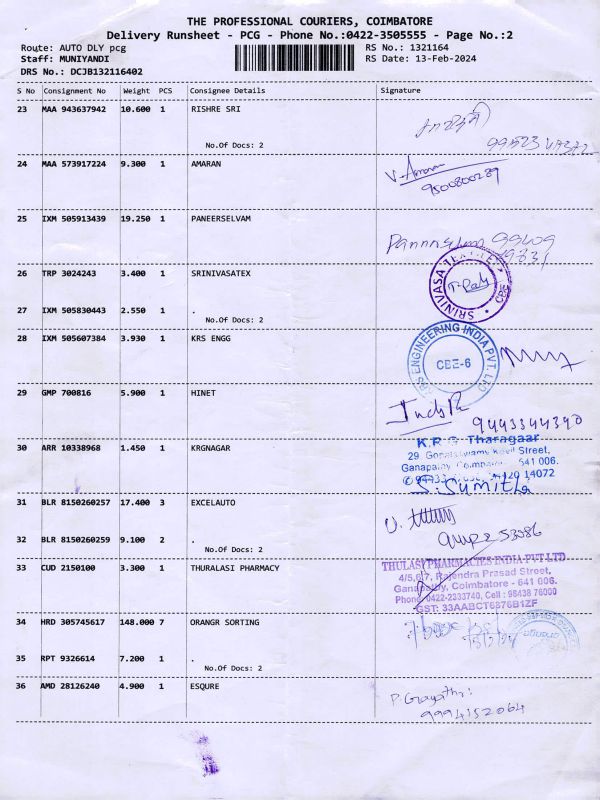 THE PROFESSIONAL COURIERS, COIMBATORE
Delivery Runsheet - PCG - Phone No.:0422-3505555 - Page No.:2
Route: AUTO DLY pcg RS No.: 1321164
Staff: MUNIYANDI RS Date: 13-Feb-2024
DRS No.: DCJB132116402
S No Consignment No Weight PCS Consignee Details Signature
23 MAA 943637942 10.600 1 RISHRE SRI
No.Of Docs: 2
24 MAA 573917224 9.300 1 AMARAN
V. Amaran
9500800289
25 IXM 505913439 19.250 1 PANEERSELVAM
26 TRP 3024243 3.400 1 SRINIVASATEX
SRINIVASA TEX CBE
27 IXM 505830443 2.550 1 .
No.Of Docs: 2
28 IXM 505607384 3.930 1 KRS ENGG
KRS ENGINEERING INDIA PVT. LTD
CBE-6
29 GMP 700816 5.900 1 HINET
9443344390
30 ARR 10338968 1.450 1 KRGNAGAR
K.R.G. Tharagaar
Street,
Ganapathy 641 006.
14072
S. Sumitha
31 BLR 8150260257 17.400 3 EXCELAUTO
32 BLR 8150260259 9.100 2 .
No.Of Docs: 2
33 CUD 2150100 3.300 1 THURALASI PHARMACY
THULASI PHARMACIES INDIA PVT LTD
4/5,6,7, Rajendra Prasad Street,
Ganapathy, Coimbatore - 641 006.
Phone: 0422-2333740, Cell : 98438 76000
GST: 33AABCT6876B1ZF
34 HRD 305745617 148.000 7 ORANGR SORTING
35 RPT 9326614 7.200 1 .
No.Of Docs: 2
36 AMD 28126240 4.900 1 ESQURE
P. Gayathri
9994152064